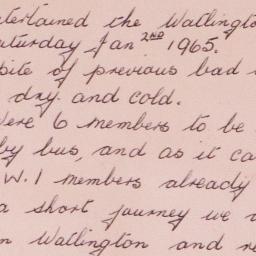 entertained the Watlington
Saturday Jan 2ND 1965.
spite of previous bad
dry and cold.
were 6 members to be
by bus, and as it ca
W.I members already
a short journey we
in Watlington and re